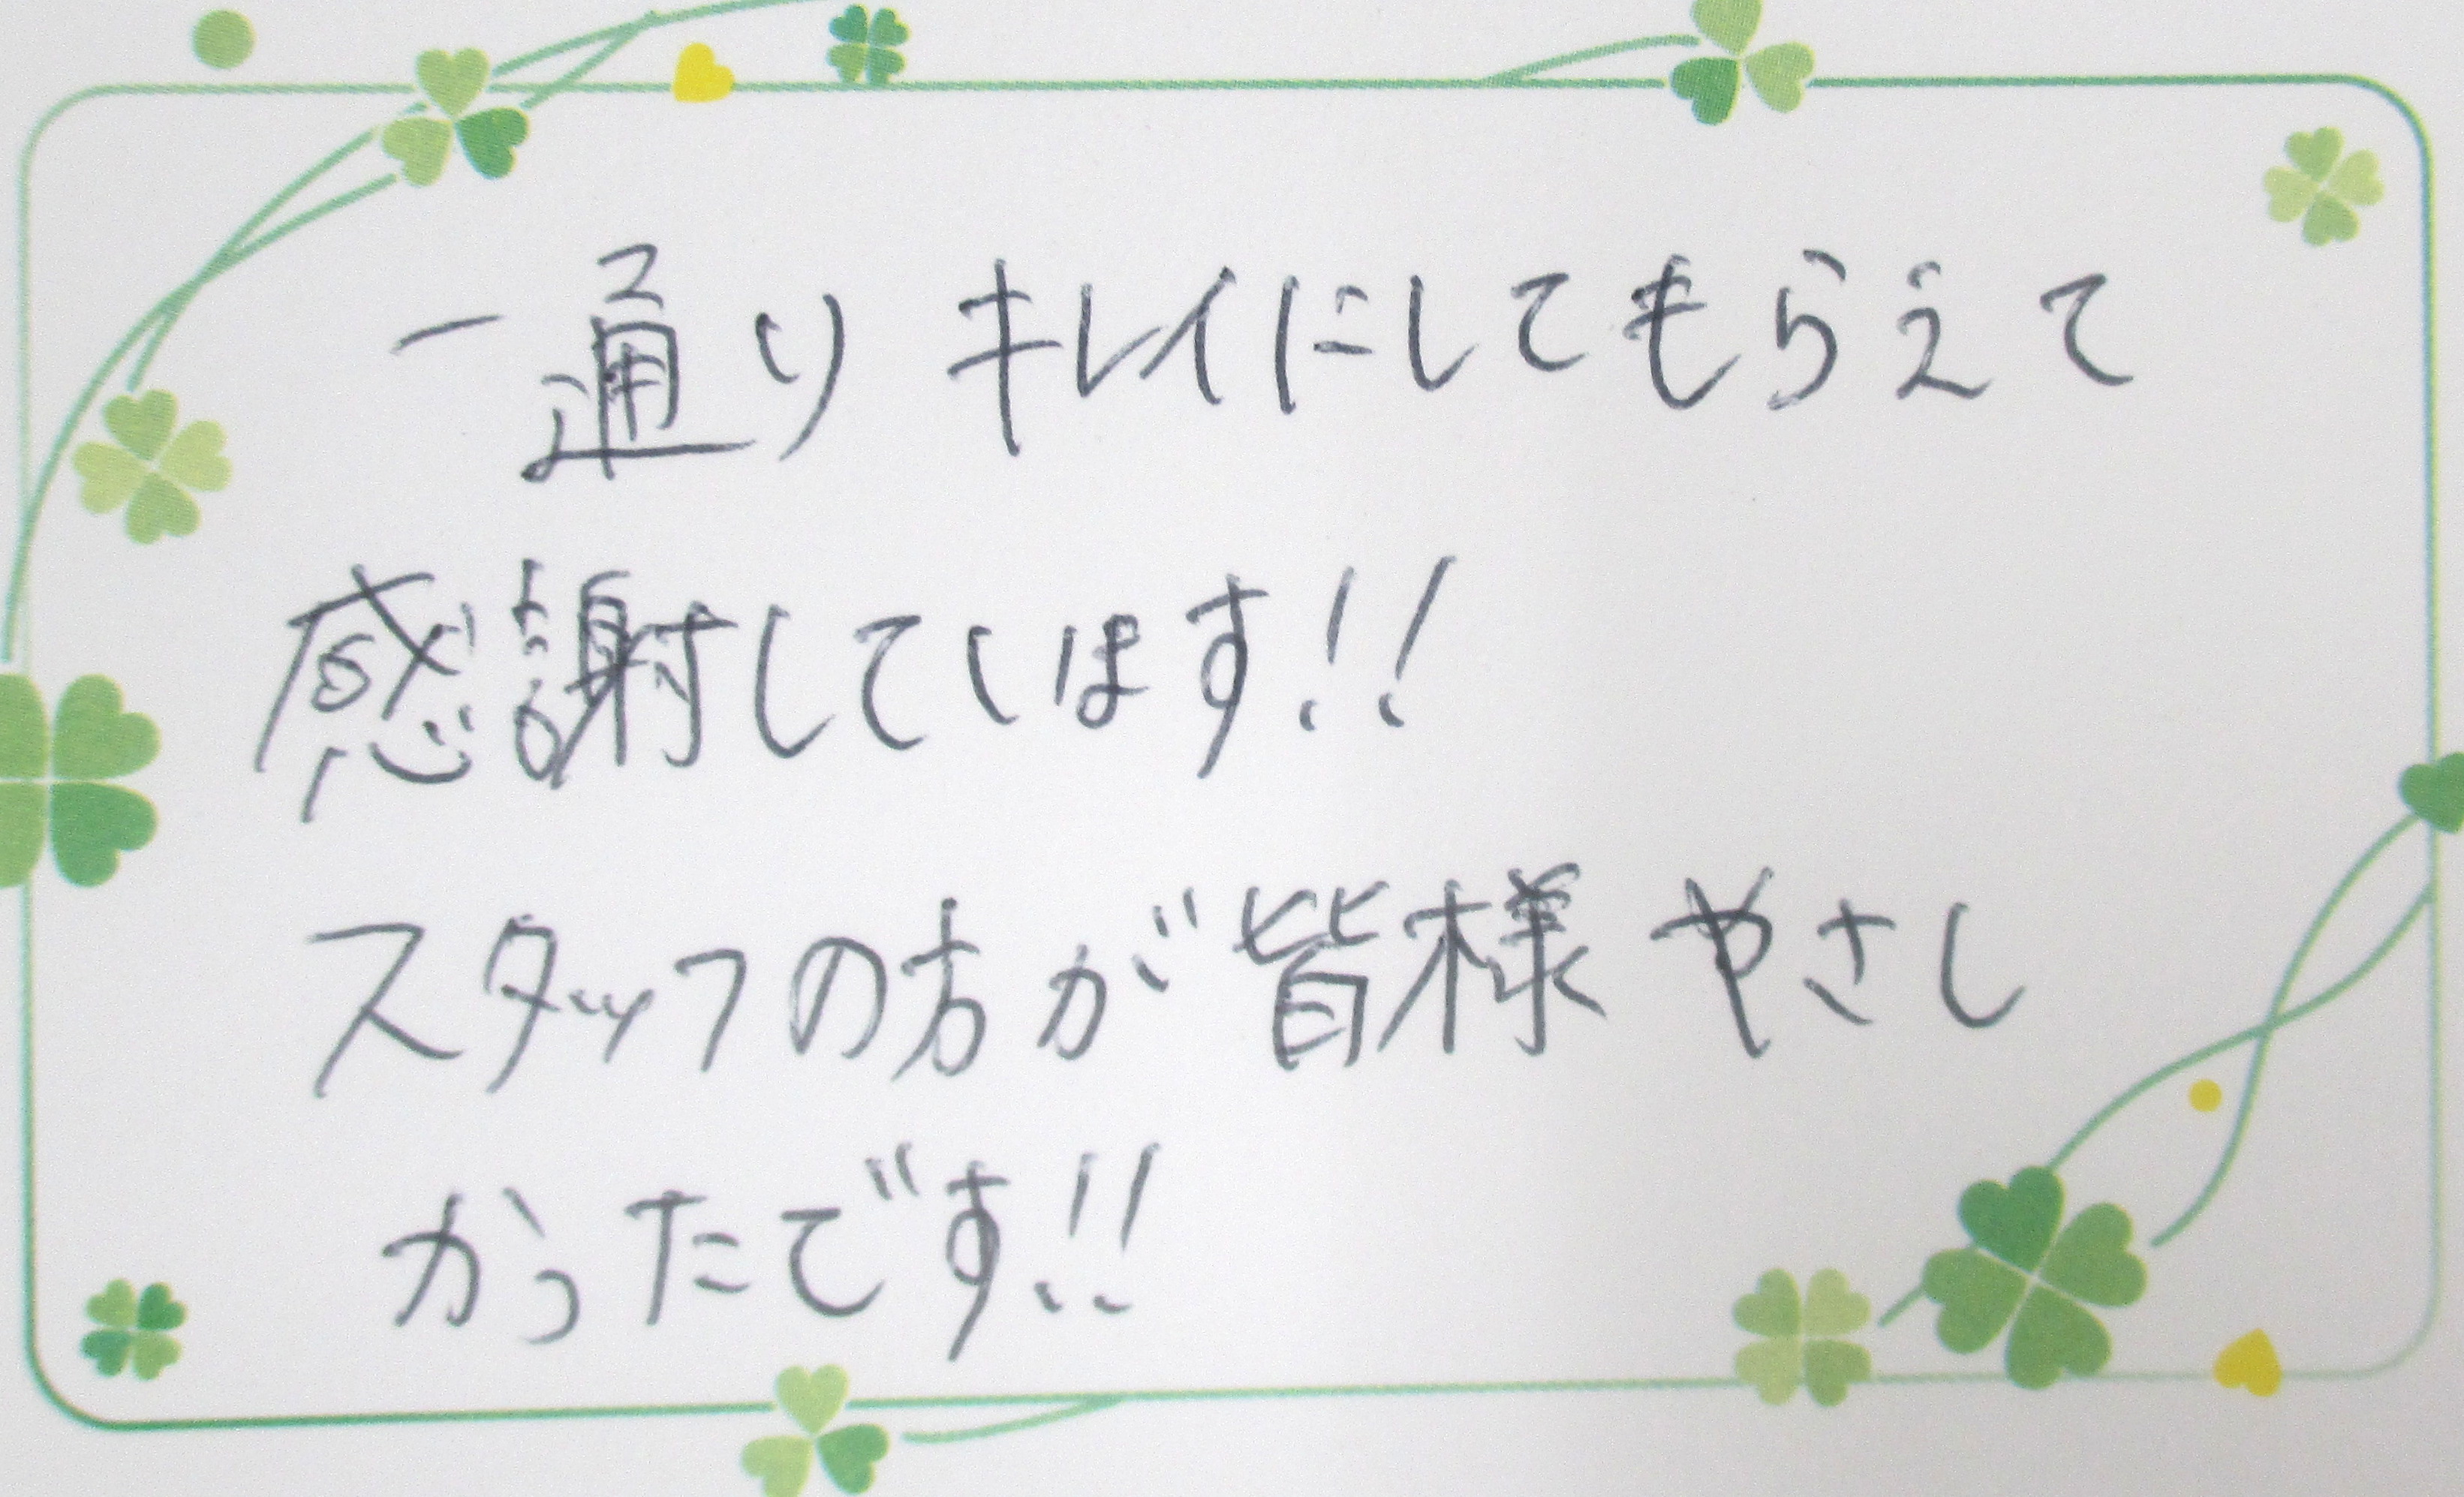 一通り キレイにしてもらえて
感謝しています!!
スタッフの方が皆様 やさし
かったです!!